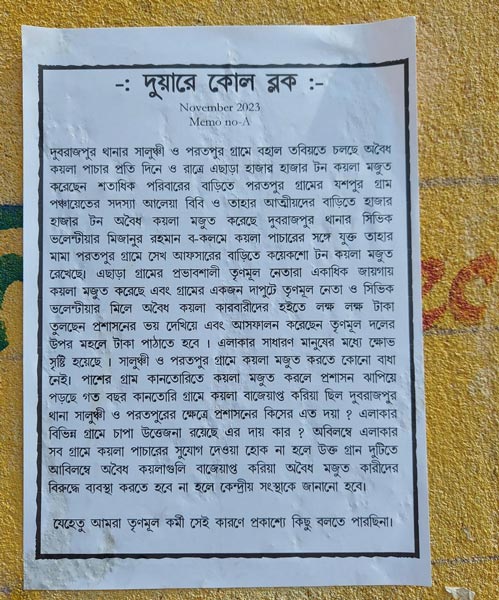 -: দুয়ারে কোল ব্লক :-
November 2023
Memo no-A
দুবরাজপুর থানার সালুঞ্চী ও পরতপুর গ্রামে বহাল তবিয়তে চলছে অবৈধ
কয়লা পাচার প্রতি দিনে ও রাত্রে এছাড়া হাজার হাজার টন কয়লা মজুত
করেছেন শতাধিক পরিবারের বাড়িতে পরতপুর গ্রামের যশপুর গ্রাম
পঞ্চায়েতের সদস্যা আলেয়া বিবি ও তাহার আত্মীয়দের বাড়িতে হাজার
হাজার টন অবৈধ কয়লা মজুত করেছে দুবরাজপুর থানার সিভিক
ভলেন্টীয়ার মিজানুর রহমান ব-কলমে কয়লা পাচারের সঙ্গে যুক্ত তাহার
মামা পরতপুর গ্রামে সেখ আফসারের বাড়িতে কয়েকশো টন কয়লা মজুত
রেখেছে। এছাড়া গ্রামের প্রভাবশালী তৃণমূল নেতারা একাধিক জায়গায়
কয়লা মজুত করেছে এবং গ্রামের একজন দাপুটে তৃণমূল নেতা ও সিভিক
ভলেন্টীয়ার মিলে অবৈধ কয়লা কারবারীদের হইতে লক্ষ লক্ষ টাকা
তুলছেন প্রশাসনের ভয় দেখিয়ে এবং আসফালন করেছেন তৃণমূল দলের
উপর মহলে টাকা পাঠাতে হবে । এলাকার সাধারণ মানুষের মধ্যে ক্ষোভ
সৃষ্টি হয়েছে । সালুঞ্চী ও পরতপুর গ্রামে কয়লা মজুত করতে কোনো বাধা
নেই। পাশের গ্রাম কানতোরিতে কয়লা মজুত করলে প্রশাসন ঝাপিয়ে
পড়ছে গত বছর কানতোরি গ্রামে কয়লা বাজেয়াপ্ত করিয়া ছিল দুবরাজপুর
থানা সালুঞ্চী ও পরতপুরের ক্ষেত্রে প্রশাসনের কিসের এত দয়া ? এলাকার
বিভিন্ন গ্রামে চাপা উত্তেজনা রয়েছে এর দায় কার ? অবিলম্বে এলাকার
সব গ্রামে কয়লা পাচারের সুযোগ দেওয়া হোক না হলে উক্ত গ্রান দুটিতে
আবিলম্বে অবৈধ কয়লাগুলি বাজেয়াপ্ত করিয়া অবৈধ মজুত কারীদের
বিরুদ্ধে ব্যবস্থা করতে হবে না হলে কেন্দ্রীয় সংস্থাকে জানানো হবে।
যেহেতু আমরা তৃণমূল কর্মী সেই কারণে প্রকাশ্যে কিছু বলতে পারছিনা।